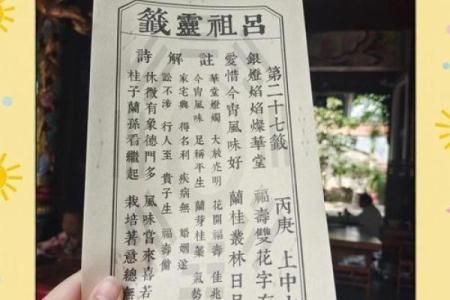 呂祖靈籤
第二十七籤 丙庚 上中
銀燈焰焰燦華堂 福壽雙花字
愛惜今宵風味好 蘭桂叢林日
註
華堂燈燭 大放光明 花開福壽 佳兆
今宵風味 足稱平生 蘭芽桂蕊 氣勢
解
家宅興 得名利 疾病無 婚姻遂
訟不涉 行人至 貴子生 福壽備
詩
休徵有象德門多 風味當來喜若
桂子蘭孫看繼起 栽培著意總無